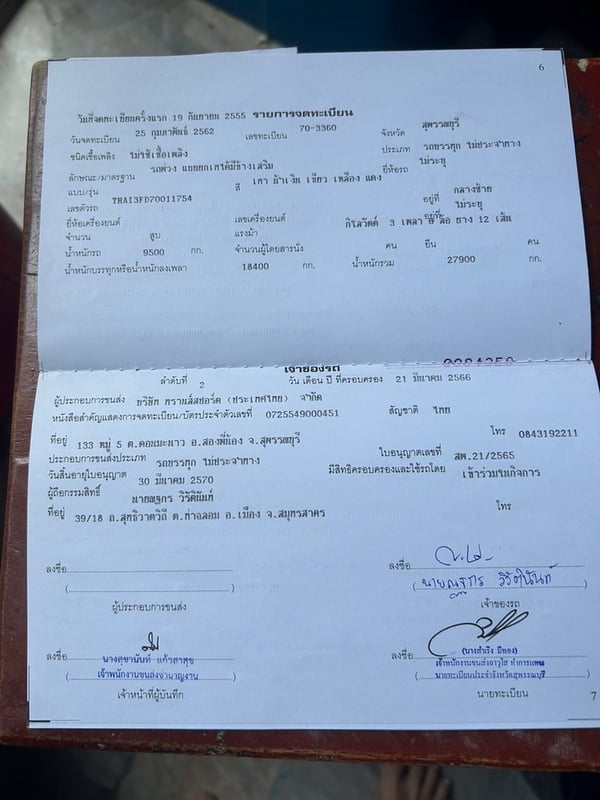 6
วันที่จดทะเบียนครั้งแรก 19 กันยายน 2555 รายการจดทะเบียน
วันจดทะเบียน 25 กุมภาพันธ์ 2562 เลขทะเบียน 70-3360 จังหวัด สุพรรณบุรี
ชนิดเชื้อเพลิง ไม่ใช้เชื้อเพลิง ประเภท รถบรรทุก ไม่ประจำทาง
ลักษณะ/มาตรฐาน รถพ่วง แบบยกเทได้มีข้างเสริม ยี่ห้อรถ ไม่ระบุ
แบบ/รุ่น สี เทา น้ำเงิน เขียว เหลือง แดง
เลขตัวรถ THAI3FD70011754 อยู่ที่ กลางซ้าย
ยี่ห้อเครื่องยนต์ เลขเครื่องยนต์ อยู่ที่ ไม่ระบุ
จำนวน สูบ แรงม้า กิโลวัตต์ 3 เพลา ล้อ ยาง 12 เส้น
น้ำหนักรถ 9500 กก. จำนวนผู้โดยสารนั่ง คน ยืน คน
น้ำหนักบรรทุกหรือน้ำหนักลงเพลา 18400 กก. น้ำหนักรวม 27900 กก.
เจ้าของรถ
ลำดับที่ 2 วัน เดือน ปี ที่ครอบครอง 21 มีนาคม 2566
ผู้ประกอบการขนส่ง บริษัท ทรานส์สปอร์ต (ประเทศไทย) จำกัด
หนังสือสำคัญแสดงการจดทะเบียน/บัตรประจำตัวเลขที่ 0725549000451 สัญชาติ ไทย
ที่อยู่ 133 หมู่ 5 ต.ดอนมะนาว อ.สองพี่น้อง จ.สุพรรณบุรี โทร 0843192211
ประกอบการขนส่งประเภท รถบรรทุก ไม่ประจำทาง ใบอนุญาตเลขที่ สพ.21/2565
วันสิ้นอายุใบอนุญาต 30 มีนาคม 2570 มีสิทธิครอบครองและใช้รถโดย เข้าร่วมกิจการ
ผู้ถือกรรมสิทธิ์ นายณฐกร วิรัตินันท์
ที่อยู่ 39/18 ถ.สุทธิวาตวิถี ต.ท่าฉลอม อ.เมือง จ.สมุทรสาคร โทร
ลงชื่อ ลงชื่อ
(นายณฐกร วิรัตินันท์)
ผู้ประกอบการขนส่ง เจ้าของรถ
ลงชื่อ ลงชื่อ
(นางสำเริง มีทอง)
นางสุชานันท์ แก้วสาสุข เจ้าพนักงานขนส่งอาวุโส ทำการแทน
เจ้าพนักงานขนส่งชำนาญงาน นายทะเบียนประจำจังหวัดสุพรรณบุรี
เจ้าหน้าที่ผู้บันทึก นายทะเบียน
7